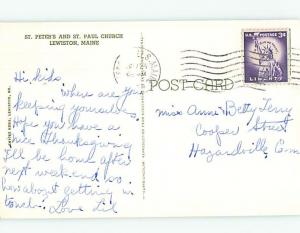 ST. PETER'S AND ST. PAUL CHURCH
LEWISTON, MAINE
Hi, kids.
Where are you
keeping yourselves.
Hope you have a
nice Thanksgiving
I'll be home after
next weekend so
how about getting in
touch. Love Lil
POST CARD
U.S. POSTAGE 3¢
LIBERTY
Miss Anne & Betty Terry
Cooper Street
Hazardville, Conn